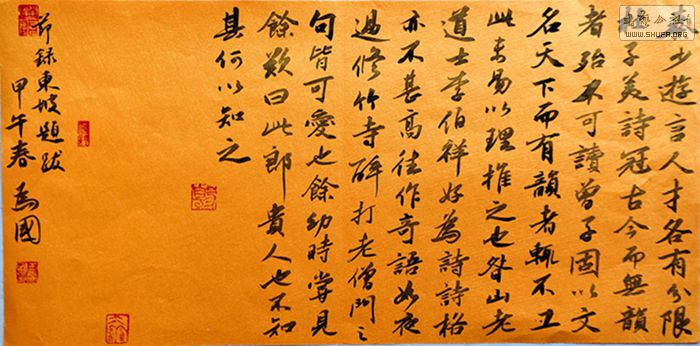 秦少游言人才各有分限
杜子美詩冠古今而無韻
者殆不可讀曾子固以文
名天下而有韻者輒不工
此未易以理推之也眉山老
道士李伯祥好為詩詩格
亦不甚高往作奇語如夜
過修竹寺醉打老僧門之
句皆可愛也餘幼時嘗見
餘歎曰此郎貴人也不知
其何以知之
節錄東坡題跋
甲午春為國